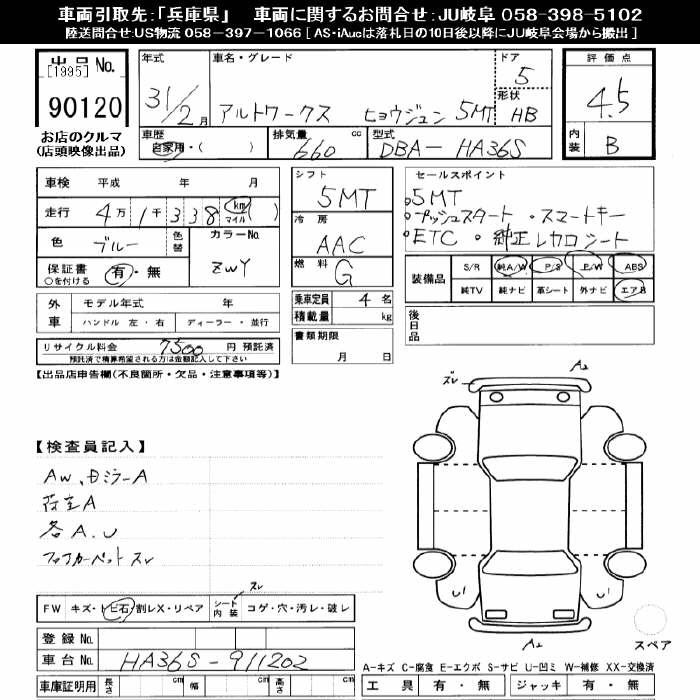 車両引取先:「兵庫県」 車両に関するお問合せ:JU岐阜 058-398-5102
陸送問合せ:US物流 058-397-1066 [ AS・iAucは落札日の10日後以降にJU岐阜会場から搬出 ]
出品 No.
[1995]
90120
お店のクルマ
(店頭映像出品)
年式 車名・グレード ドア
31/2月 アルトワークス ヒョウジュン 5MT 5
形状 HB
車歴 排気量 cc 型式
自家用・( ) 660 DBA- HA36S
評価点
4.5
内装 B
車検 平成 年 月
走行 4万 1千 3 3 8 km マイル ( )
色 ブルー 色替 カラーNo. ZWY
保証書 有・無
○を付ける
外車 モデル年式 年
ハンドル 左・右 ディーラー・並行
リサイクル料金 7500 円 預託済
預託済で精算希望される方は金額記入して下さい
シフト 5MT
冷房 AAC
燃料 G
乗車定員 4 名
積載量 kg
書類期限
月 日
セールスポイント
・5MT
・プッシュスタート ・スマートキー
・ETC ・純正レカロシート
装備品 S/R 純A/W P/S P/W ABS
純TV 純ナビ 革シート 外ナビ エアB
後日品
【出品店申告欄(不良箇所・欠品・注意事項等)】
【検査員記入】
AW、ミラーA
各A.U
フロアカーペットスレ
スレ A2
U' U'
A2
スペア
スレ
FW キズ・トビ石/割レX・リペア シート内装 コゲ・穴・汚レ・破レ
登録No.
車台No. HA36S-911202
車庫証明用 長さ cm 幅 cm 高さ cm
A-キズ C-腐食 E-エクボ S-サビ U-凹ミ W-補修 XX-交換済
工具 有・無 ジャッキ 有・無